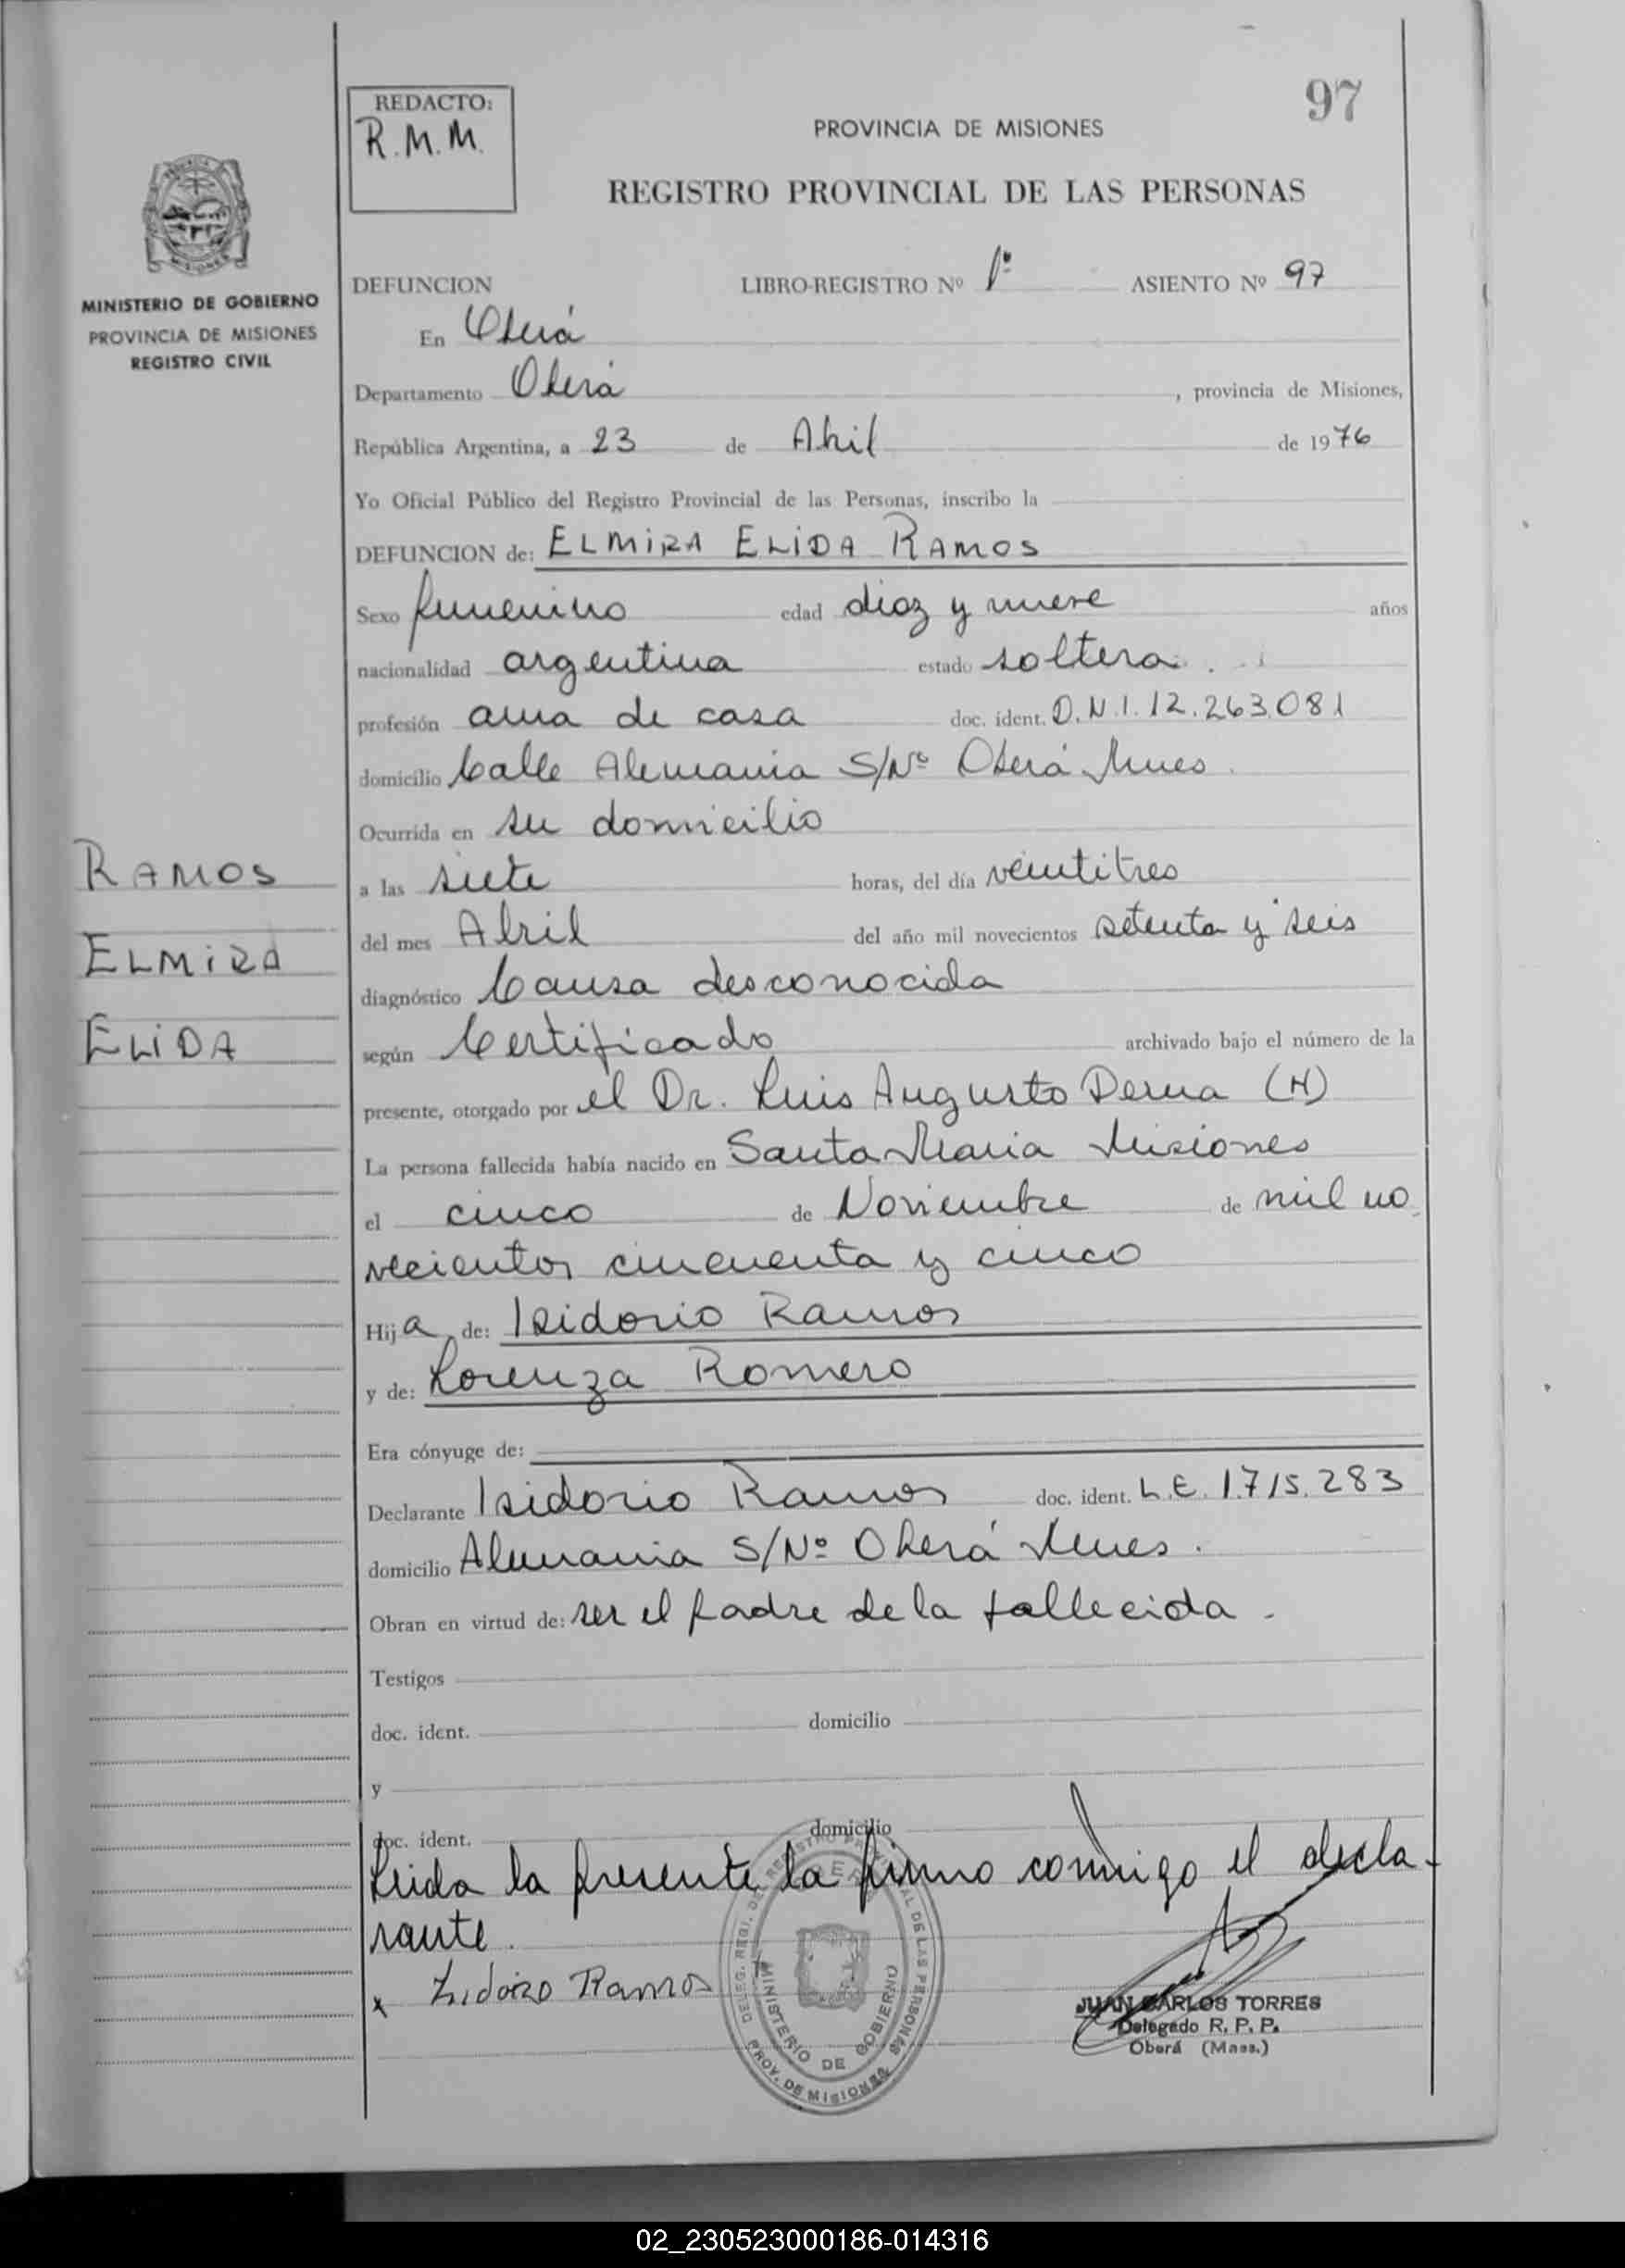 97
REDACTO:
R.M.M.
PROVINCIA DE MISIONES
REGISTRO PROVINCIAL DE LAS PERSONAS
MINISTERIO DE GOBIERNO
PROVINCIA DE MISIONES
REGISTRO CIVIL
DEFUNCION LIBRO-REGISTRO Nº 1º ASIENTO Nº 97
En Oberá
Departamento Oberá, provincia de Misiones,
República Argentina, a 23 de Abril de 1976
Yo Oficial Público del Registro Provincial de las Personas, inscribo la
DEFUNCION de: ELMiRA ELiDA RAMOS
Sexo femenino edad diez y nueve años
nacionalidad argentina estado soltera.
profesión ama de casa doc. ident. D.N.I. 12.263.081
domicilio Calle Alemania S/Nº Oberá Mnes.
Ocurrida en su domicilio
RAMOS
ELMiRA
ELiDA
a las siete horas, del día veintitres
del mes Abril del año mil novecientos setenta y seis
diagnóstico Causa desconocida
según Certificado archivado bajo el número de la
presente, otorgado por el Dr. Luis Augusto Derna (H)
La persona fallecida había nacido en Santa Maria Misiones
el cinco de Noviembre de mil no
vecientos cincuenta y cinco
Hija de: Isidorio Ramos
y de: Lorenza Romero
Era cónyuge de:
Declarante Isidorio Ramos doc. ident. L.E. 1.715.283
domicilio Alemania S/Nº Oberá Mnes.
Obran en virtud de: ser el padre de la fallecida.
Testigos
doc. ident. domicilio
y
doc. ident. domicilio
Leida la presente la firmo conmigo el decla-
rante.
x Isidorio Ramos
DELEG. REGI. DEL REGISTRO PROVINCIAL DE LAS PERSONAS
MINISTERIO DE GOBIERNO
PROV. DE MISIONES
JUAN CARLOS TORRES
Delegado R. P. P.
Oberá (Mnes.)
02_230523000186-014316